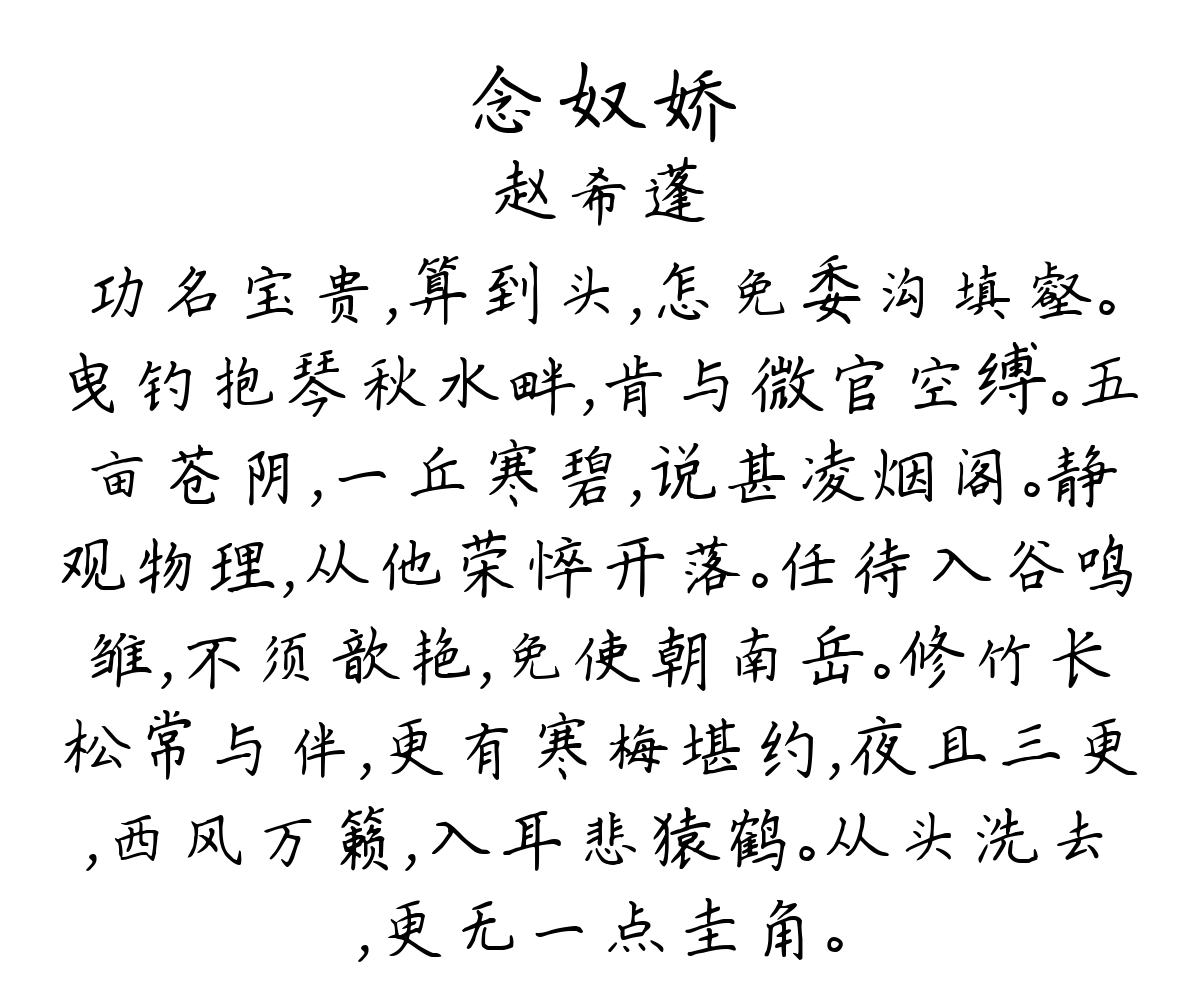 念奴娇
赵希蓬
功名宝贵,算到头,怎免委沟填壑。
曳钓抱琴秋水畔,肯与微官空缚。五
亩苍阴,一丘寒碧,说甚凌烟阁。静
观物理,从他荣悴开落。任待入谷鸣
雏,不须歆艳,免使朝南岳。修竹长
松常与伴,更有寒梅堪约,夜且三更
,西风万籁,入耳悲猿鹤。从头洗去
,更无一点圭角。